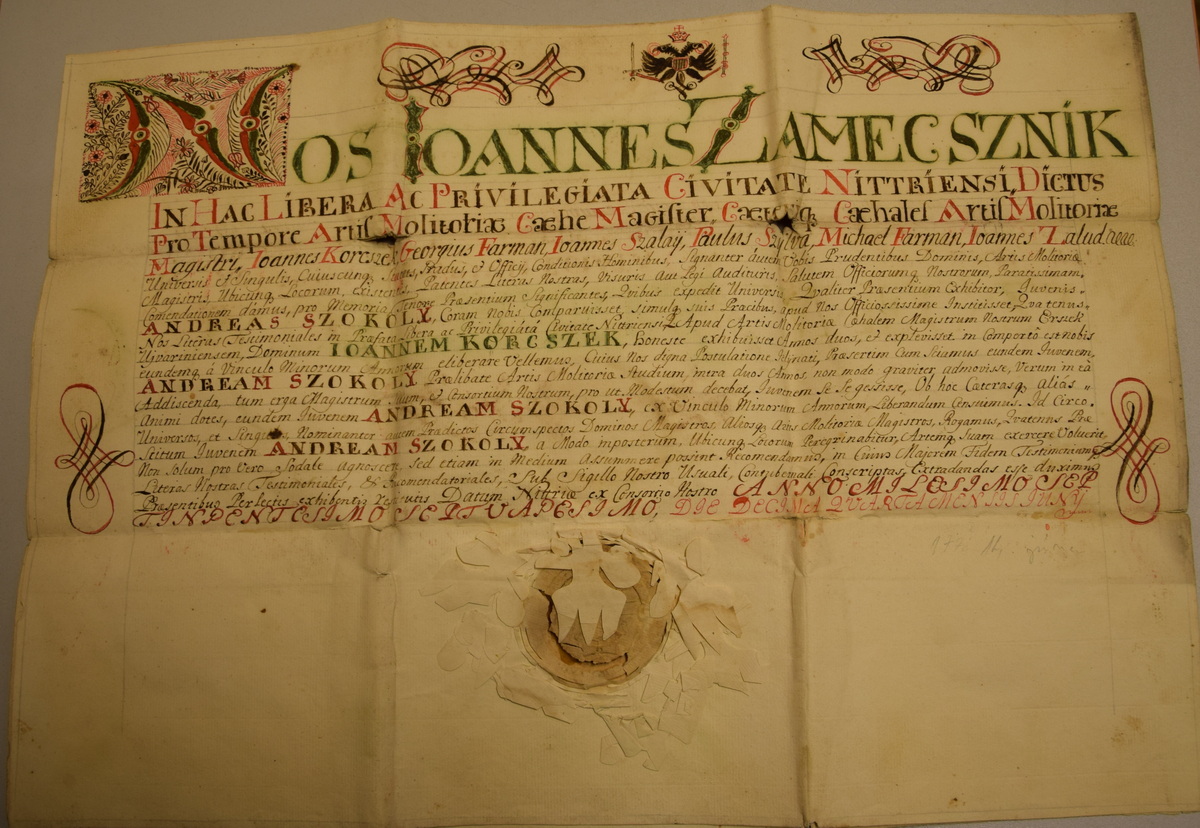 NOS IOANNES ZAMECSZNIK
IN HAC LIBERA AC PRIVILEGIATA CIVITATE NITTRIENSI, DICTUS
PRO TEMPORE ARTIS MOLITORIÆ CÆHE MAGISTER, CÆTERIQ CÆHALES ARTIS MOLITORIÆ
MAGISTRI, IOANNES KORCSZEK, GEORGIUS FARMAN, IOANNES SZALAÿ, PAULUS SZYLVA, MICHAEL FARMAN, IOANNES ZALUD.
Universis et Singulis, Cuiuscunq Status, Gradus, et Officÿ, Conditionis Hominibus, Signanter autem Vobis Prudentibus Dominis, Artis Molitoriæ
Magistris, Ubicunq Locorum existentibus Patentes Literas Nostras, Visuris, Aut Legi Audituris, Salutem Officiorumq Nostrorum, Paratissimam,
Comendationem damus, pro Memoria Tenore Præsentium Significantes, Quibus expedit Universis, Qvaliter Præsentium Exhibitor, Iuvenis
ANDREAS SZOKOLY, Coram Nobis Comparuisset, simulq suis Præcibus, apud Nos Officiosissime Institisset, Qvatenus
Nos Literas Testimoniales in Præfata Libera ac Privilegiata Civitate Nittriensi, Apud Artis Molitoriæ Cæhalem Magistrum Nostrum Ersek
Uivariniensem, Dominum IOANNEM KORCSZEK, Honeste exhibuisset Annos duos, et explevisset, in Comporto est nobis
eundemq à Vinculo Minorum Annorum eliberare Vellemus, Cuius Nos digna Postulatione Præsertim Cum Sciamus eundem Iuvenem,
ANDREAM SZOKOLY Prælibatæ Artis Molitoriæ Studium, intra duos Annos, non modo graviter, admovisse, Verum in eâ
Addiscenda, tum erga Magistrum Suum, et Consortium Nostrum, pro ut Modestum decebat, Iuvenem Se Se gessisse, Ob hoc Cæterasq alias
Animi dotes, eundem Iuvenem ANDREAM SZOKOLY, ex Vinculo Minorum Annorum, Liberandum Censuimus. Id Circo
Universos, et Singulos, Nominanter autem Prædictos Circumspectos Dominos Magistros, Aliosq Artis Molitoriæ Magistros, Rogamus, Qvatenus Præ
Scitum Iuvenem ANDREAM SZOKOLY, a Modo imposterum, Ubicunq Locorum Peregrinabitur, Artemq Suam exercere Voluerit
Non Solum pro Vero Sodale agnoscere, Sed etiam in Medium Assummere possint Recomendamus, in Cuius Majorem Fidem Testimonium
Literas Nostras Testimoniales, & Recomendatoriales, Sub Sigillo Nostro Usuali, Contubernali Conscriptas, Extradandas esse duximus
Præsentibus Perlectis exhibentis restitutis Datum Nittriæ ex Consorgio Nostro ANNO MILESIMO SEP
TINDENTESIMO SEPTVAPESIMO, DIE DECIMA QVARTA MENSIS IUNY